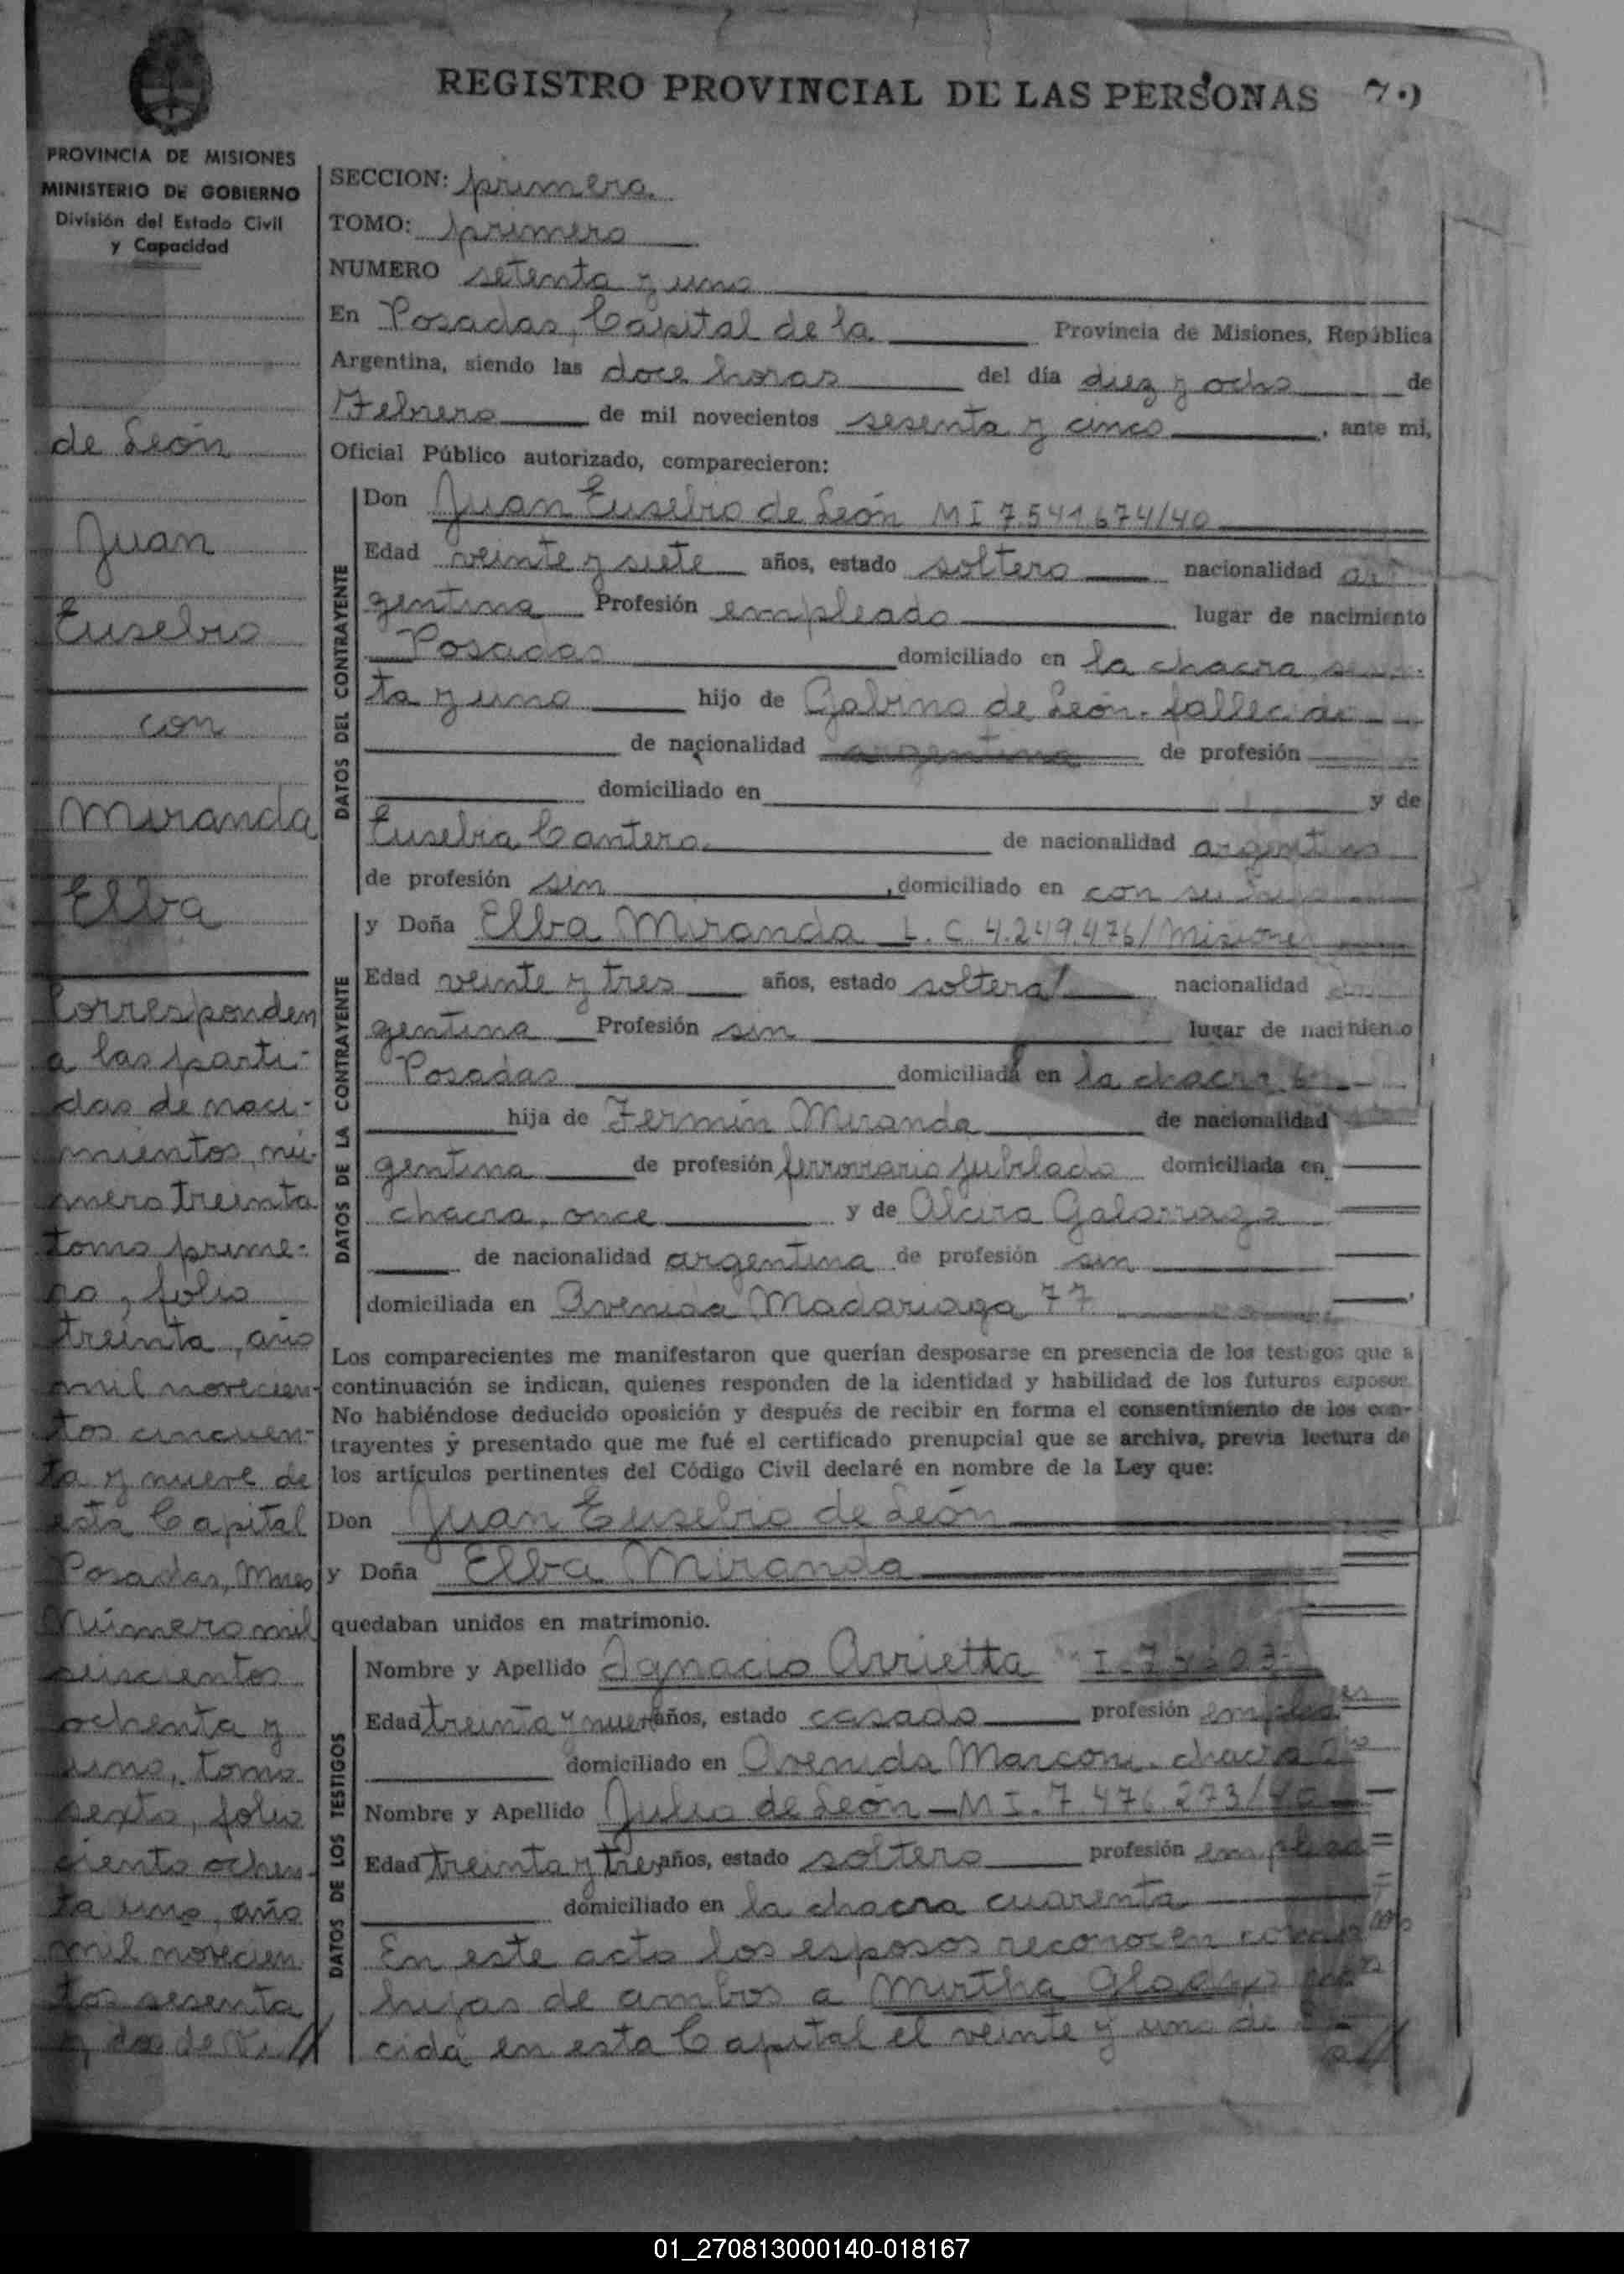 REGISTRO PROVINCIAL DE LAS PERSONAS
PROVINCIA DE MISIONES
MINISTERIO DE GOBIERNO
División del Estado Civil
y Capacidad
de León
Juan
Eusebio
con
Miranda
Elba
Corresponden
a las parti-
das de naci-
mientos, nú-
mero treinta
tomo prime-
ro, folio
treinta, año
mil novecien-
tos cincuen-
ta y nueve de
esta Capital
Posadas, Mnes
Número mil
seiscientos
ochenta y
uno, tomo
sexto, folio
ciento ochen-
ta uno, año
mil novecien
tos sesenta
y dos de
SECCION: primera
TOMO: primero
NUMERO setenta y uno
En Posadas, Capital de la Provincia de Misiones, República
Argentina, siendo las doce horas del día diez y ocho de
Febrero de mil novecientos sesenta y cinco, ante mí,
Oficial Público autorizado, comparecieron:
DATOS DEL CONTRAYENTE
Don Juan Eusebio de León MI 7.541.674/40
Edad veinte y siete años, estado soltero nacionalidad ar
gentina Profesión empleado lugar de nacimiento
Posadas domiciliado en la chacra
ta y uno hijo de Gabino de León. fallecido
de nacionalidad argentina de profesión
domiciliado en y de
Eusebia Cantero de nacionalidad argentina
de profesión sin, domiciliado en con su hijo
DATOS DE LA CONTRAYENTE
y Doña Elba Miranda L. C. 4.249.476/Misiones
Edad veinte y tres años, estado soltera nacionalidad ar
gentina Profesión sin lugar de nacimiento
Posadas domiciliada en la chacra
hija de Fermín Miranda de nacionalidad
gentina de profesión ferroviario jubilado domiciliada en
chacra, once y de Alcira Galarraga
de nacionalidad argentina de profesión sin
domiciliada en Avenida Madariaga 77
Los comparecientes me manifestaron que querían desposarse en presencia de los testigos que a
continuación se indican, quienes responden de la identidad y habilidad de los futuros esposos.
No habiéndose deducido oposición y después de recibir en forma el consentimiento de los con-
trayentes y presentado que me fué el certificado prenupcial que se archiva, previa lectura de
los artículos pertinentes del Código Civil declaré en nombre de la Ley que:
Don Juan Eusebio de León
y Doña Elba Miranda
quedaban unidos en matrimonio.
DATOS DE LOS TESTIGOS
Nombre y Apellido Ignacio Arrietta
Edad treinta y nueve años, estado casado profesión
domiciliado en Avenida Marconi. chacra
Nombre y Apellido Julio de León — MI. 7.476.273/40
Edad treinta y tres años, estado soltero profesión
domiciliado en la chacra cuarenta
En este acto los esposos reconocen como
hijas de ambos a Mirtha Gladys
cida en esta Capital el veinte y uno de
01_270813000140-018167